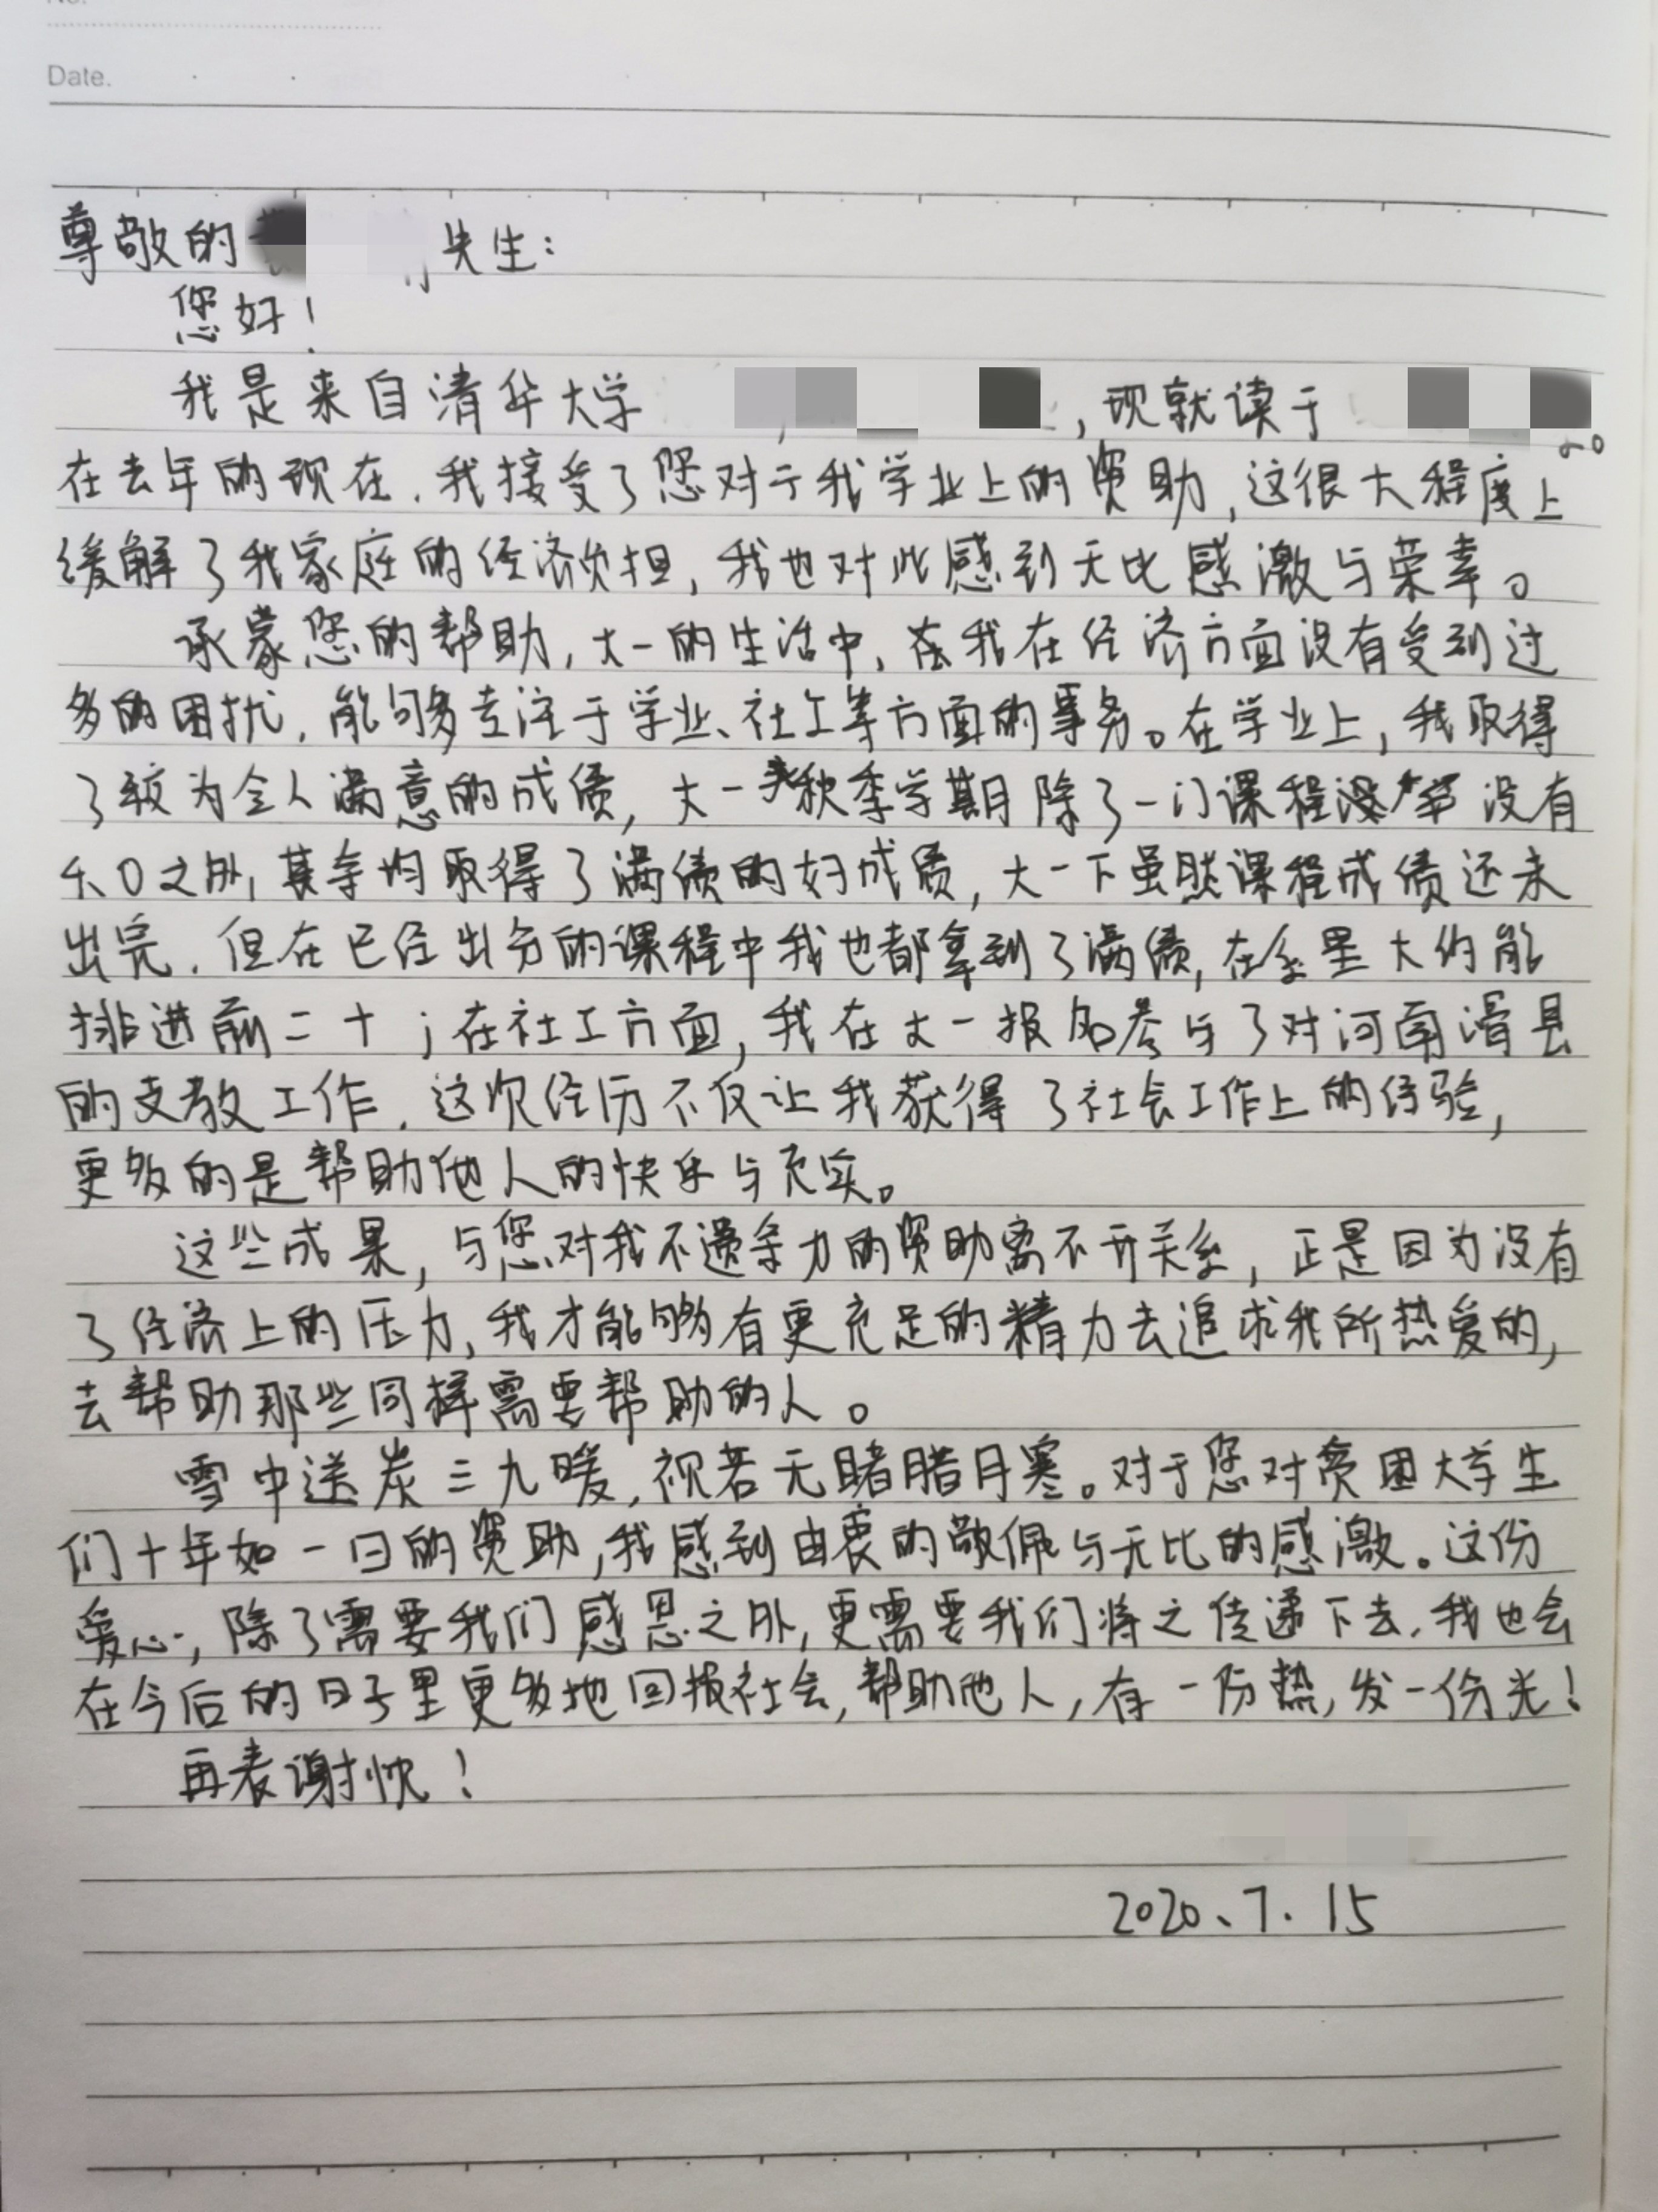 Date.
尊敬的 先生：
您好！
我是来自清华大学 ，现就读于 。
在去年的现在，我接受了您对于我学业上的资助，这很大程度上
缓解了我家庭的经济负担，我也对此感到无比感激与荣幸。
承蒙您的帮助，大一的生活中，我在经济方面没有受到过
多的困扰，能够专注于学业、社工等方面的事务。在学业上，我取得
了较为令人满意的成绩，大一秋季学期除了一门课程没有
4.0之外，其余均取得了满绩的好成绩，大一下虽然课程成绩还未
出完，但在已经出分的课程中我也都拿到了满绩，在系里大约能
排进前二十；在社工方面，我在大一报名参与了对河南滑县
的支教工作，这次经历不仅让我获得了社会工作上的经验，
更多的是帮助他人的快乐与充实。
这些成果，与您对我不遗余力的资助离不开关系，正是因为没有
了经济上的压力，我才能够有更充足的精力去追求我所热爱的，
去帮助那些同样需要帮助的人。
雪中送炭三九暖，视若无睹腊月寒。对于您对贫困大学生
们十年如一日的资助，我感到由衷的敬佩与无比的感激。这份
爱心，除了需要我们感恩之外，更需要我们将之传递下去，我也会
在今后的日子里更多地回报社会，帮助他人，有一份热，发一份光！
再表谢忱！
2020、7.15